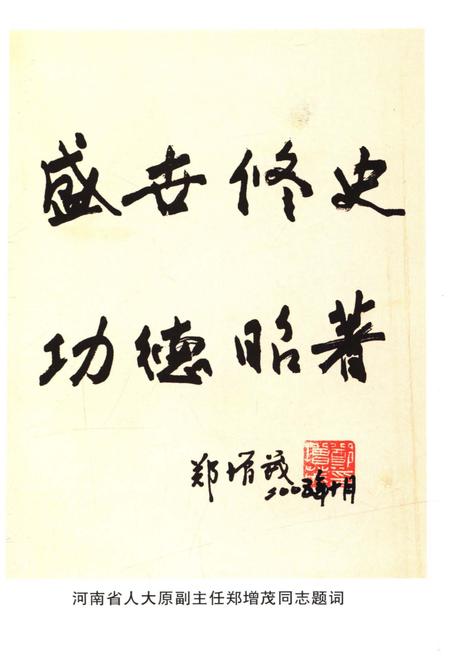 盛世修史
功德昭著
郑增茂
二〇〇五年十月
河南省人大原副主任郑增茂同志题词